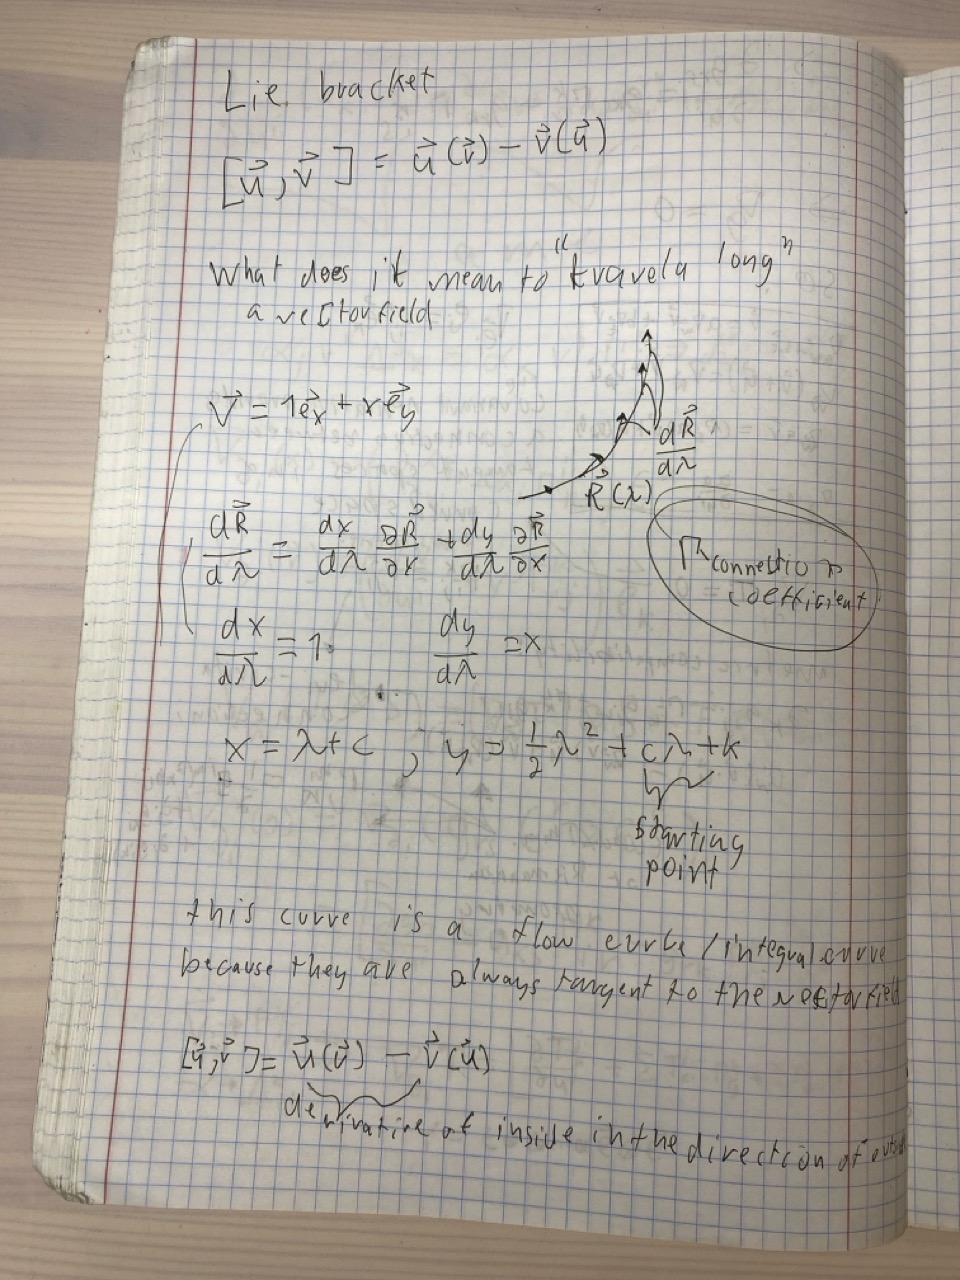 Lie bracket
[u⃗, v⃗] = u⃗(v⃗) − v⃗(u⃗)
What does it mean to "travela long"
a vectorfield
v⃗ = 1e⃗x + xe⃗y
dR⃗/dλ
R⃗(λ)
dR⃗/dλ = dx/dλ ∂R⃗/∂x + dy/dλ ∂R⃗/∂x
Γ connection
coefficient
dx/dλ = 1 dy/dλ = x
x = λ + c ; y = 1/2 λ² + cλ + k
starting
point
this curve is a flow curve / integral curve
because they are always tangent to the vectorfield
[u⃗, v⃗] = u⃗(v⃗) − v⃗(u⃗)
derivative of inside in the direction of